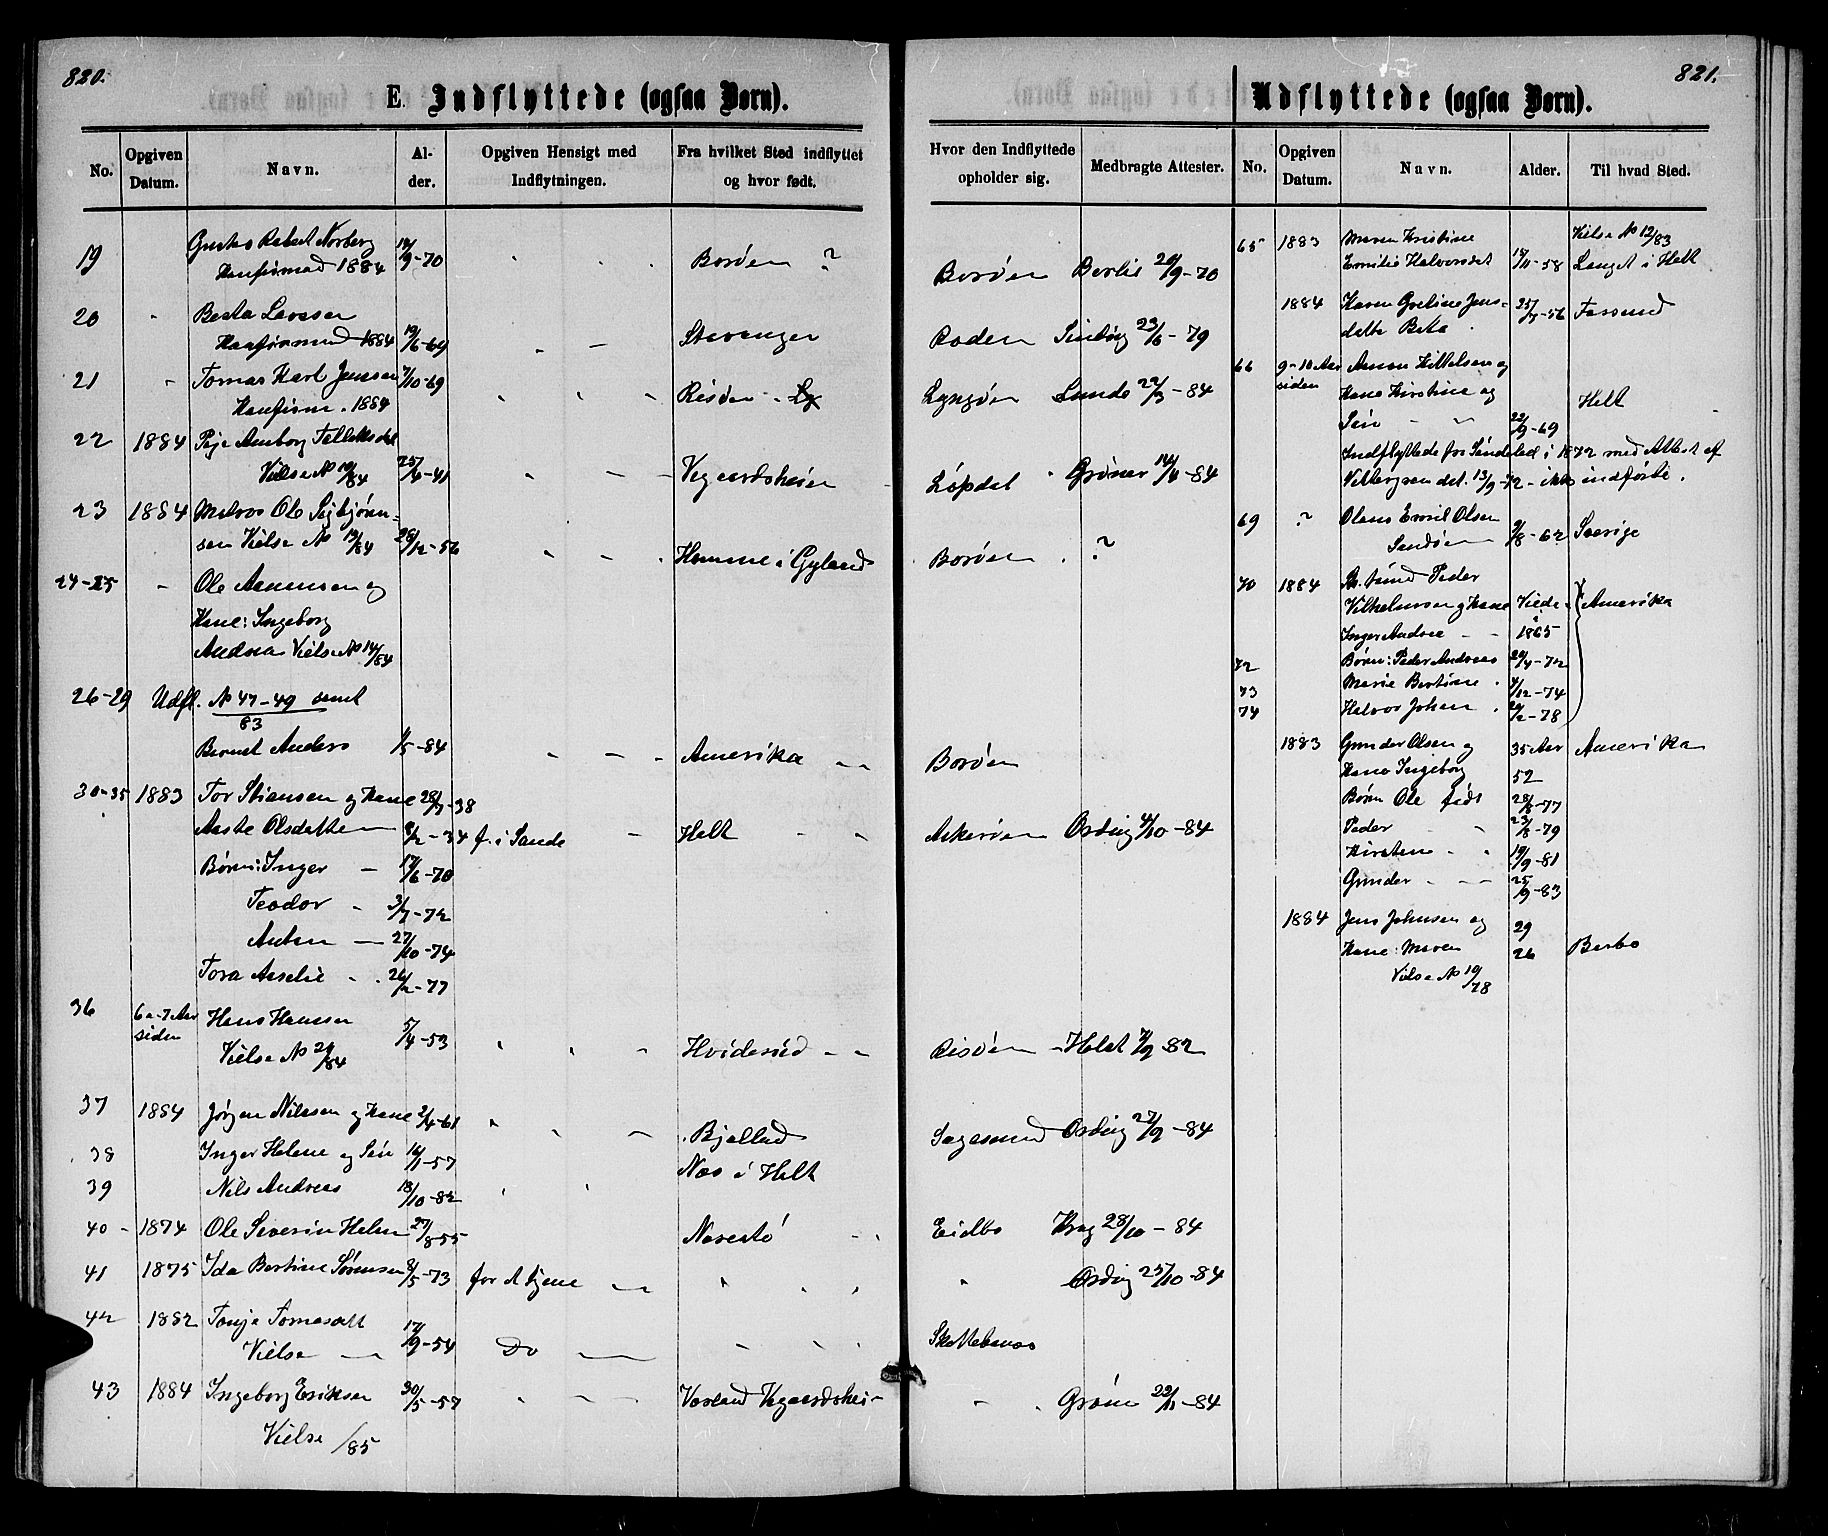 820.
E. Indflyttede (ogsaa Børn).
No. Opgiven Datum. Navn. Alder. Opgiven Hensigt med Indflytningen. Fra hvilket Sted indflyttet og hvor født.
Hvor den Indflyttede opholder sig. Medbragte Attester.
19 Norberg 9-70 Borøen ? Borøen 20/9-70
Konfirmad 1884
20 - Berta Larsen Stavanger 23/6-79
Konfirmad 1884 19/6-69
21 - Tomas Karl Jenssen 7/10-69 Risøer Lyngøer Lunde 22/3-84
Konfirm. 1884
22 1884
Vielse No 10/84 25/4-41 Vegaardsheien Løpdal Grøner 14/4-84
23 1884 Ole
sen Vielse No 13/84 28/12-56 Homme i Gyland Borøen . ?
24-25 - Ole Asmunsen og
Kone: Ingeborg
Andrea Vielse No 14/84
26-29 Udfl. No 47-49 samt
83
Bernt Anders 1/5-84 Amerika Borøen
30-35 1883 Tor Stiansen og Kone 28/7-38
Aaste Olsdatter 8/2-34 f. i Sande Holt Askerøen Ording 4/10-84
Børn: Inger - 17/6-70
Teodor - 3/7-72
Anton - 27/10-74
Tora Amelie - 26/2-77
36 6 a-7 Aar siden Hans Hansen 5/4-53
Vielse No 21/84 Hvidesed Risøer - Holst 7/9 82
37 1884 Jørgen Nilssen og Kone 2/4-61 Bjelland Sagesund Ording 27/9-84
38 Inger Helene og Søn 16/1-57 Næs i Holt
39 Nils Andreas 18/10-82
40 - 1874 Ole Severin Holm 27/8-55 Narestø Eidbo Krag 28/10-84
41 1875 Ida Bertine Sørensen 8/5-73 for at tjene Ording 25/10-84
42 1882 Tonje Tomasdatt 17/9-54
Vielse - Do Skottebenæs
43 1884 Ingeborg Eriksen 30/5-57 Vegaardshei- Grøner 22/11-84
Vielse /85
821.
Udflyttede (ogsaa Børn).
No. Opgiven Datum. Navn. Alder. Til hvad Sted.
65 1883 Maren Kristine Vielse No 12/83
Emilie Halvorsdat 14/11-58 Langet i Holt
1884 Karen Gretine Jens-
datte Beta . 25/7-56 Fossund
66 9-10 Aar siden Aanon Kittelsen og
Kone Kirstine og Holt
Søn - " 22/9-69
Indflyttede fra Søndeled i 1872 med Attest af
dat. 13/9-72 - ikke indførte.
69 ? Olaus Emil Olsen
Sandøen 9/8-62 Sverige
70 1884 Peder
Vilhelmsen og Kone Viede Amerika
Inger Andrea - - 1865
72 Børn: Peder Andreas 20/4-72
73 Marie Bertine . 4/12-74
74 Halvor Johan . 20/2-78
1883 Gunder Olsen og 35 Aar Amerika
Kone Ingeborg 52
Børn Ole født 28/8-77
Peder - " 23/8-79
Kirstene - " 19/9-81
Gunder - - - 25/9-83
1884 Jens Johnsen og 29
Kone: Maren 26 Barbo
Vielse No 19/78